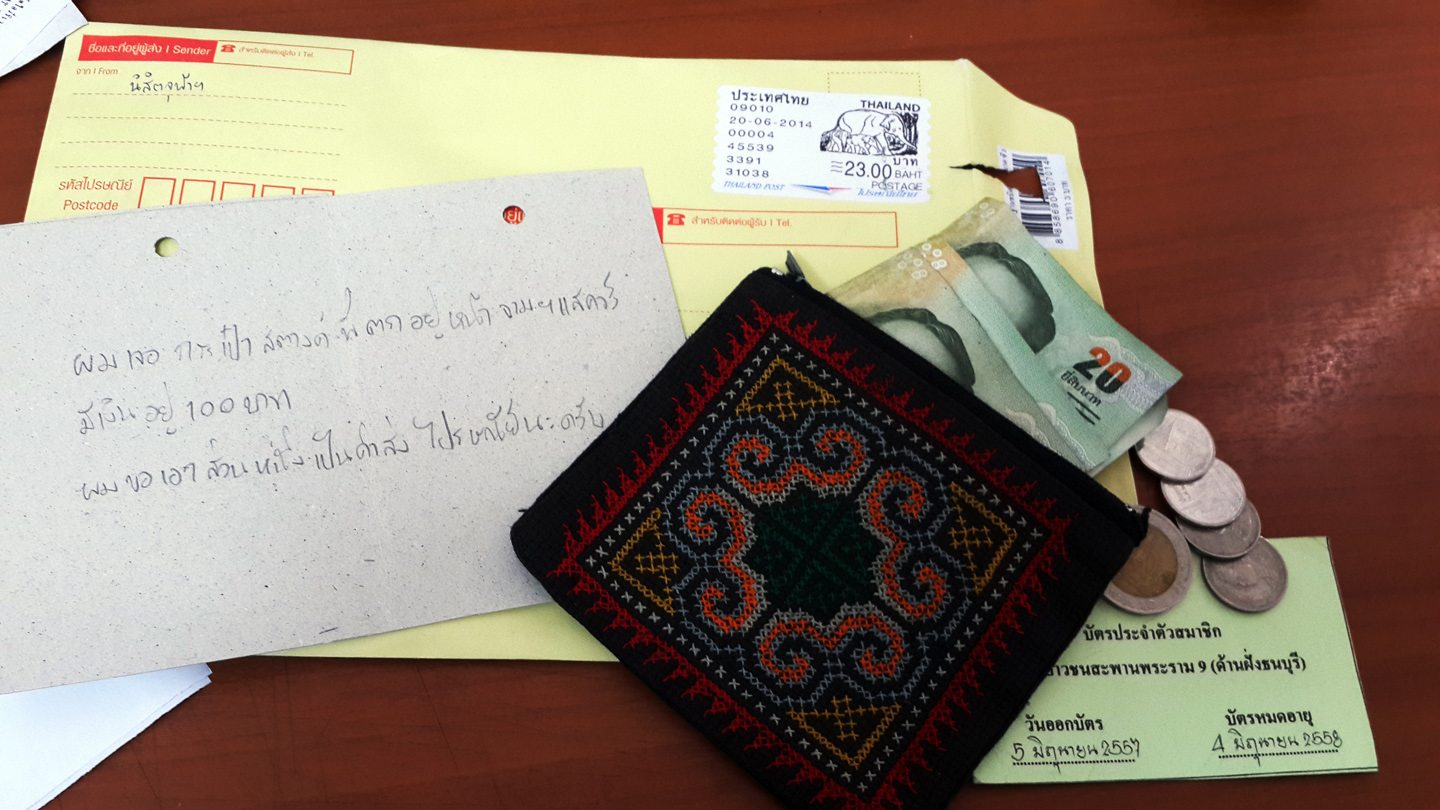 ชื่อและที่อยู่ผู้ส่ง | Sender
สำหรับติดต่อผู้ส่ง | Tel.
จาก | From
นิสิตจุฬาฯ
รหัสไปรษณีย์
Postcode
ประเทศไทย
THAILAND
09010
20-06-2014
00004
45539
3391
31038
บาท
=23.00 BAHT
POSTAGE
THAILAND POST
ไปรษณีย์ไทย
สำหรับติดต่อผู้รับ | Tel.
8 858690 607014
ราคา 3 บาท
ผมเจอกระเป๋าสตางค์พี่ตกอยู่หน้าจามฯแสควร์
มีเงินอยู่ 100 บาท
ผมขอเอาส่วนหนึ่งเป็นค่าส่งไปรษณีย์นะครับ
20
ยี่สิบบาท
บัตรประจำตัวสมาชิก
สะพานพระราม 9 (ด้านฝั่งธนบุรี)
วันออกบัตร
บัตรหมดอายุ
5 มิถุนายน 2557
4 มิถุนายน 2558